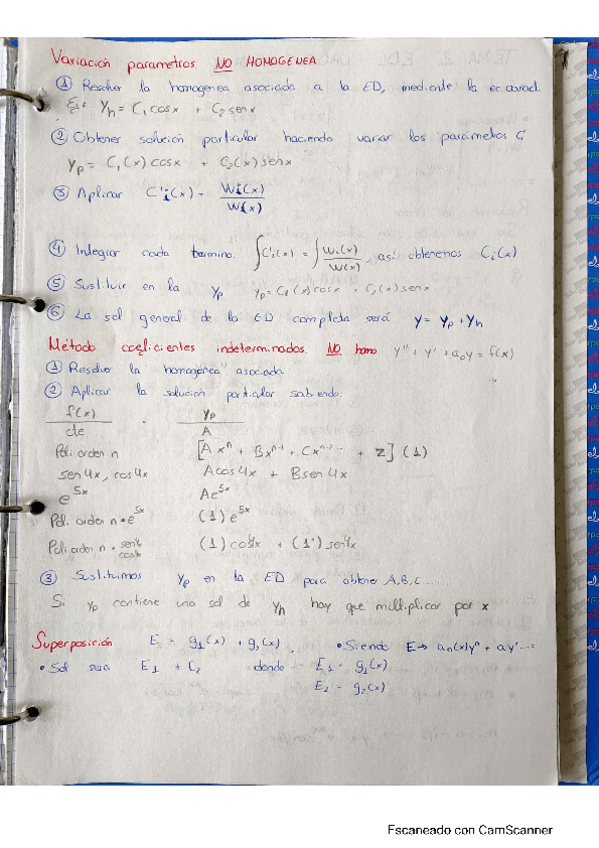 Variación parametros NO HOMOGENEA
① Resolver la homogenea asociada a la ED, mediante la ec caract.
Ej: Yh = C1 cosx + C2 senx
② Obtener solución particular haciendo variar los parámetros C
Yp = C1(x) cosx + C2(x) senx
③ Aplicar C'i(x) = Wi(x) / W(x)
④ Integrar cada termino. ∫C'i(x) = ∫Wi(x)/W(x), así obtenemos Ci(x)
⑤ Sustituir en la yp yp = C1(x) cosx + C2(x) senx
⑥ La sol general de la ED completa será y = yp + yh
Método coeficientes indeterminados. NO homo y'' + y' + a0y = f(x)
① Resolver la "homogénea" asociada.
② Aplicar la solución particular sabiendo:
f(x) yp
cte A
Poli orden n [Ax^n + Bx^n-1 + Cx^n-2... + Z] (1)
sen4x, cos4x Acos4x + Bsen4x
e^5x Ae^5x
Poli orden n • e^5x (1) e^5x
Poli orden n • sen4x cos4x (1) cos4x + (1') sen4x
③ Sustituimos yp en la ED para obtener A, B, C....
Si yp contiene una sol de yh hay que multiplicar por x
Superposición E = g1(x) + g2(x), • Siendo E → an(x)y^n + ay'...
• Sol sera E1 + E2 donde E1 = g1(x)
E2 = g2(x)
Escaneado con CamScanner